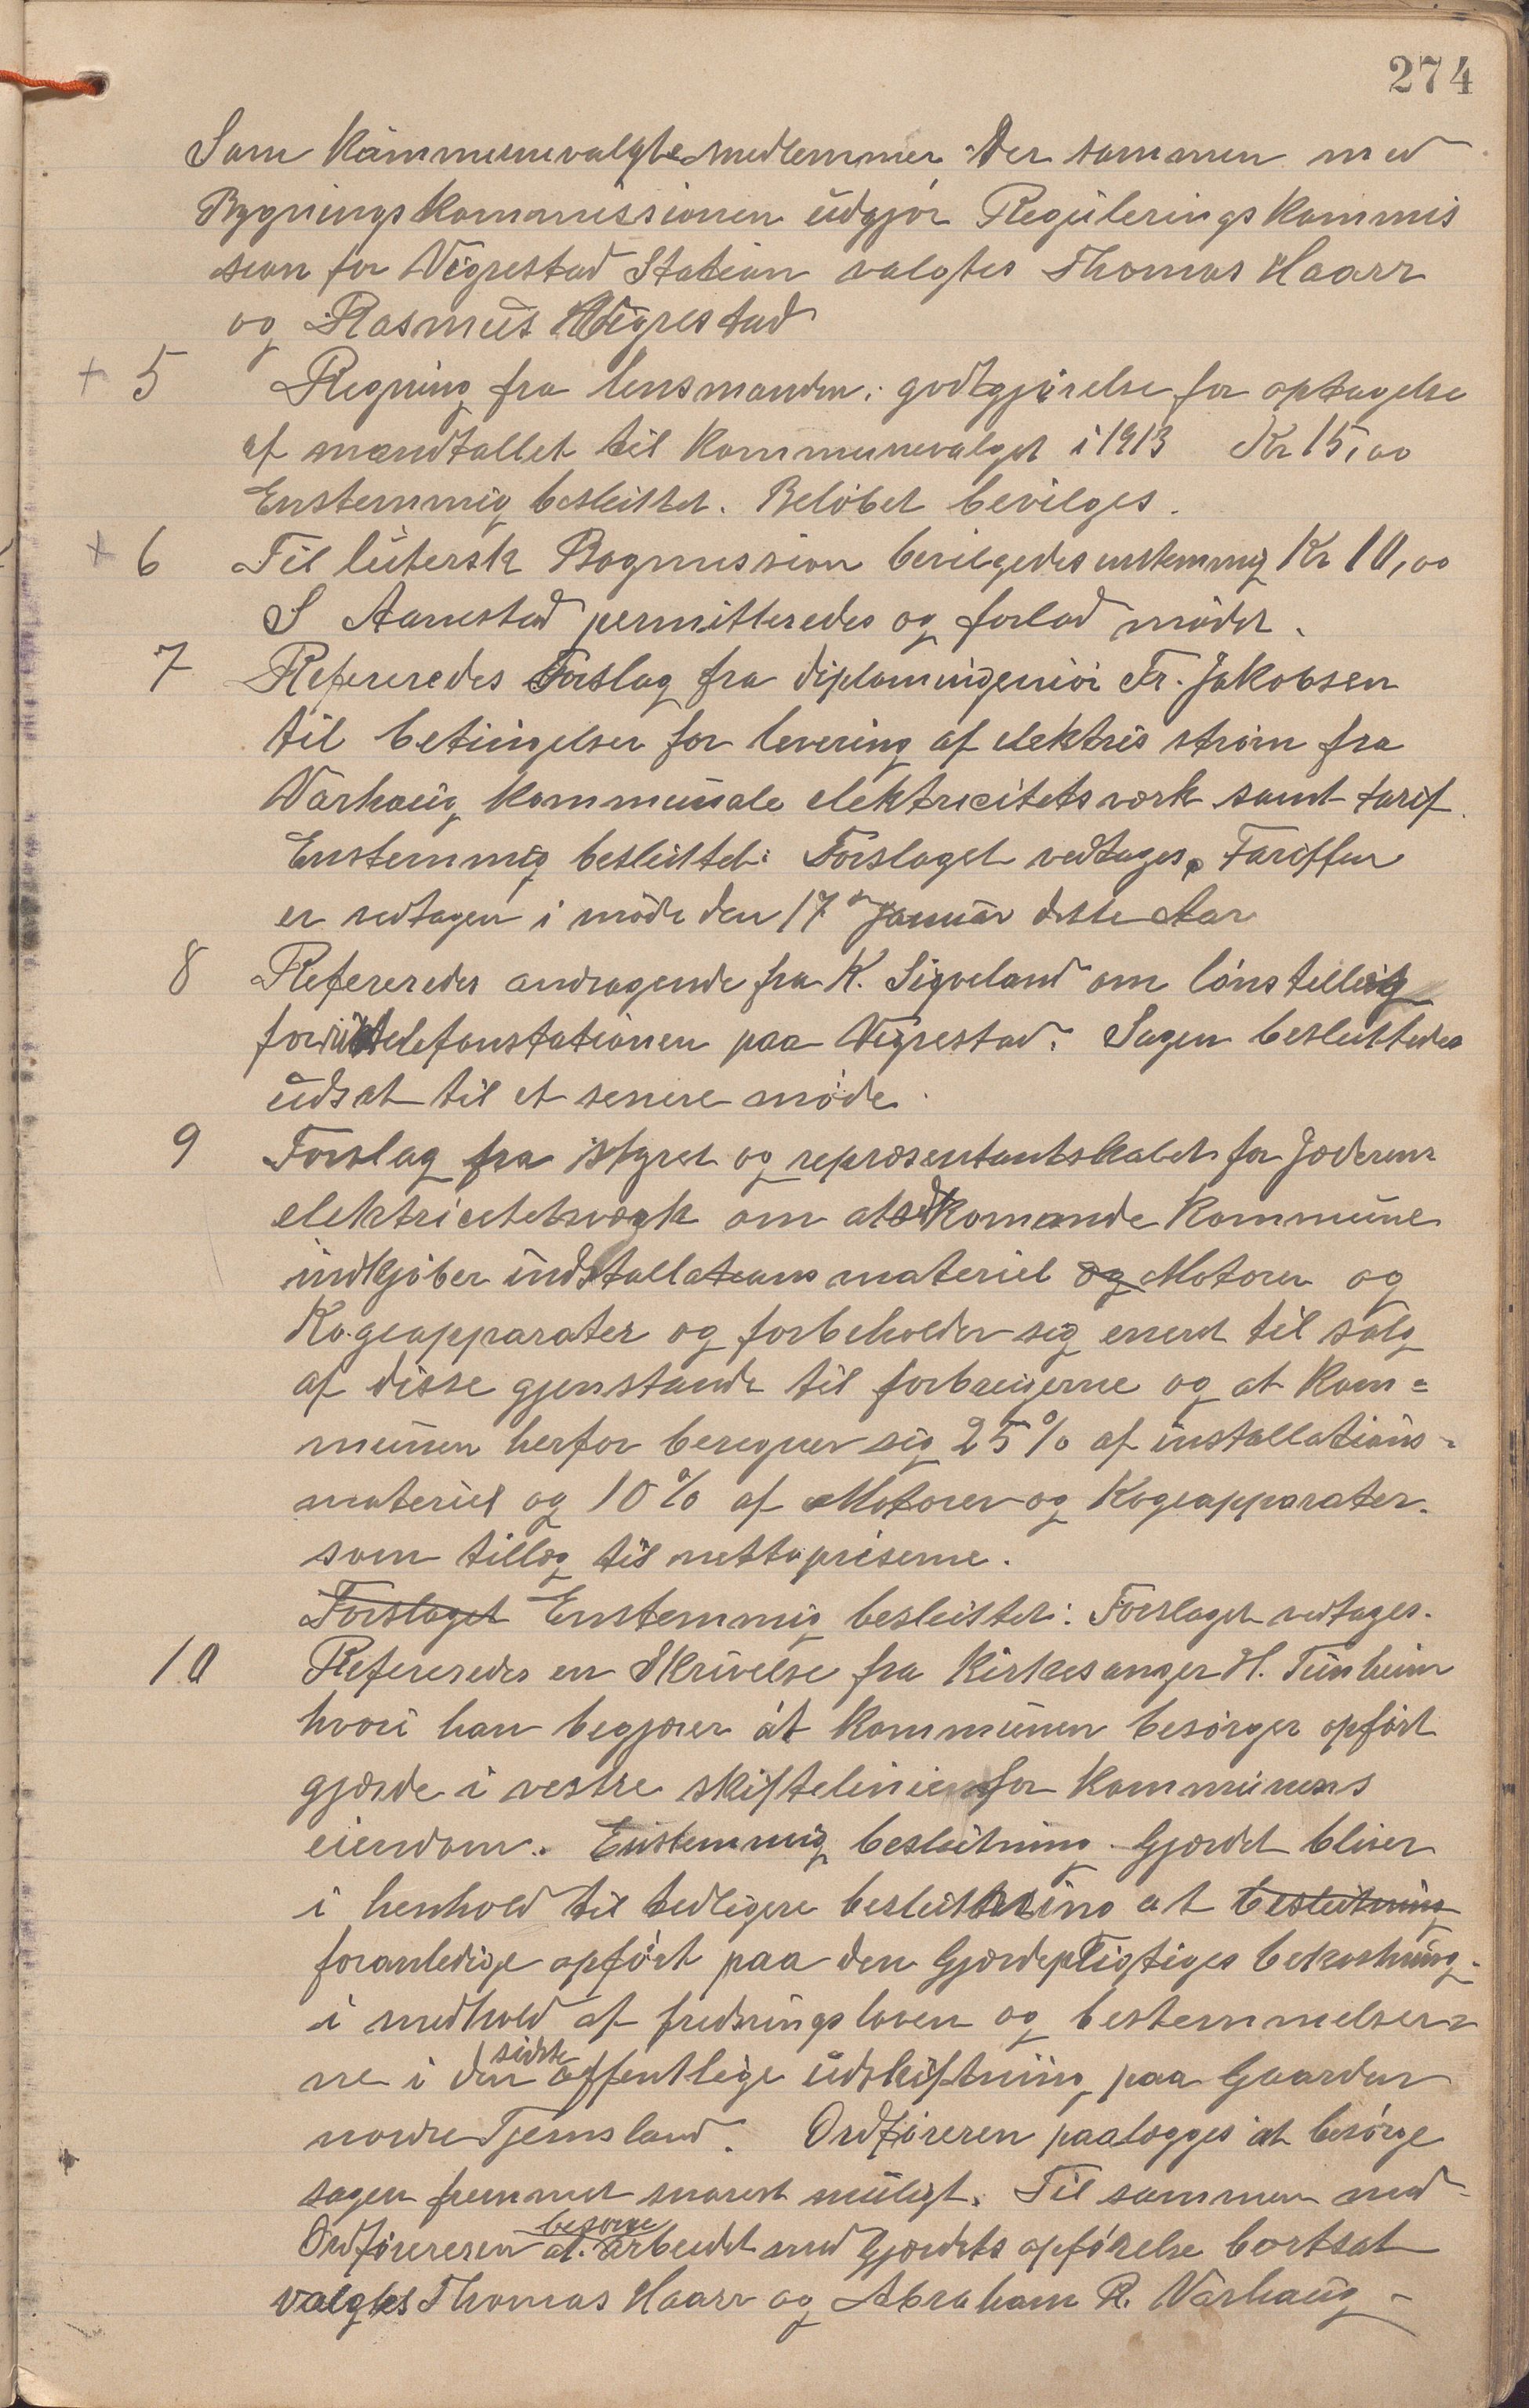 274
Som kommunevalgte medlemmer der sammen med
Bygningskommissionen udgjør Regulerings kommis
sion for Vigrestad Station valgtes Thomas Haarr
og Rasmus Vigrestad
+ 5 Regning fra lensmanden: godtgjørelse for optagelse
af mandtallet til kommunevalget i 1913 Kr 15,00
Enstemmig besluttet. Beløbet bevilges.
+ 6 Til lutersk Bogmission bevilgedes enstemmig Kr 10,00
S Aanestad permitteredes og forlod mødet.
7 Refereredes Forslag fra diplomingeniør Fr. Jakobsen
til betingelser for levering af elektris strøm fra
Varhaug kommunale elektricitetsværk samt tarif.
Enstemmig besluttet: Forslaget vedtages. Tariffen
er vedtagen i møde den 17de Januar dette Aar
8 Refereredes andragende fra K. Sigveland om lønstillæg
for rikstelefonstationen paa Vigrestad. Sagen besluttedes
udsat til et senere møde.
9 Forslag fra styret og repræsentantskabet for Jæderens
elektricitetsværk om at vedkomande kommune
indkjøber indstallations materiel og Motorer og
Kogeapparater og forbeholder sig eneret til salg
af disse gjenstande til forbrugerne og at kom=
munen herfor beregner sig 25% af installations-
materiel og 10% af Motorer og Kogeapparater.
som tillæg til nettopriserne.
Forslaget Enstemmig besluttet: Forslaget vedtages.
10 Refereredes en Skrivelse fra Kirkesanger H. Tunheim
hvori han begjærer at kommunen besørger opført
gjærde i vestre skiftelinie for kommunens
eiendom. Enstemmig beslutning. Gjærdet bliver
i henhold til tedligere beslutning at beslutning
foranledige opført paa den Gjærdepligtiges bekostning.
i medhold af fredningsloven og bestemmelser=
ne i den sidste offentlige udskiftning paa Gaarden
nordre Tjemsland. Ordføreren paalægges at besørge
sagen fremmet snarest muligt. Til sammen med
Ordføreren at besørge arbeidet med Gjærdets opførelse bortsat
valgtes Thomas Haarr og Abraham R. Varhaug -